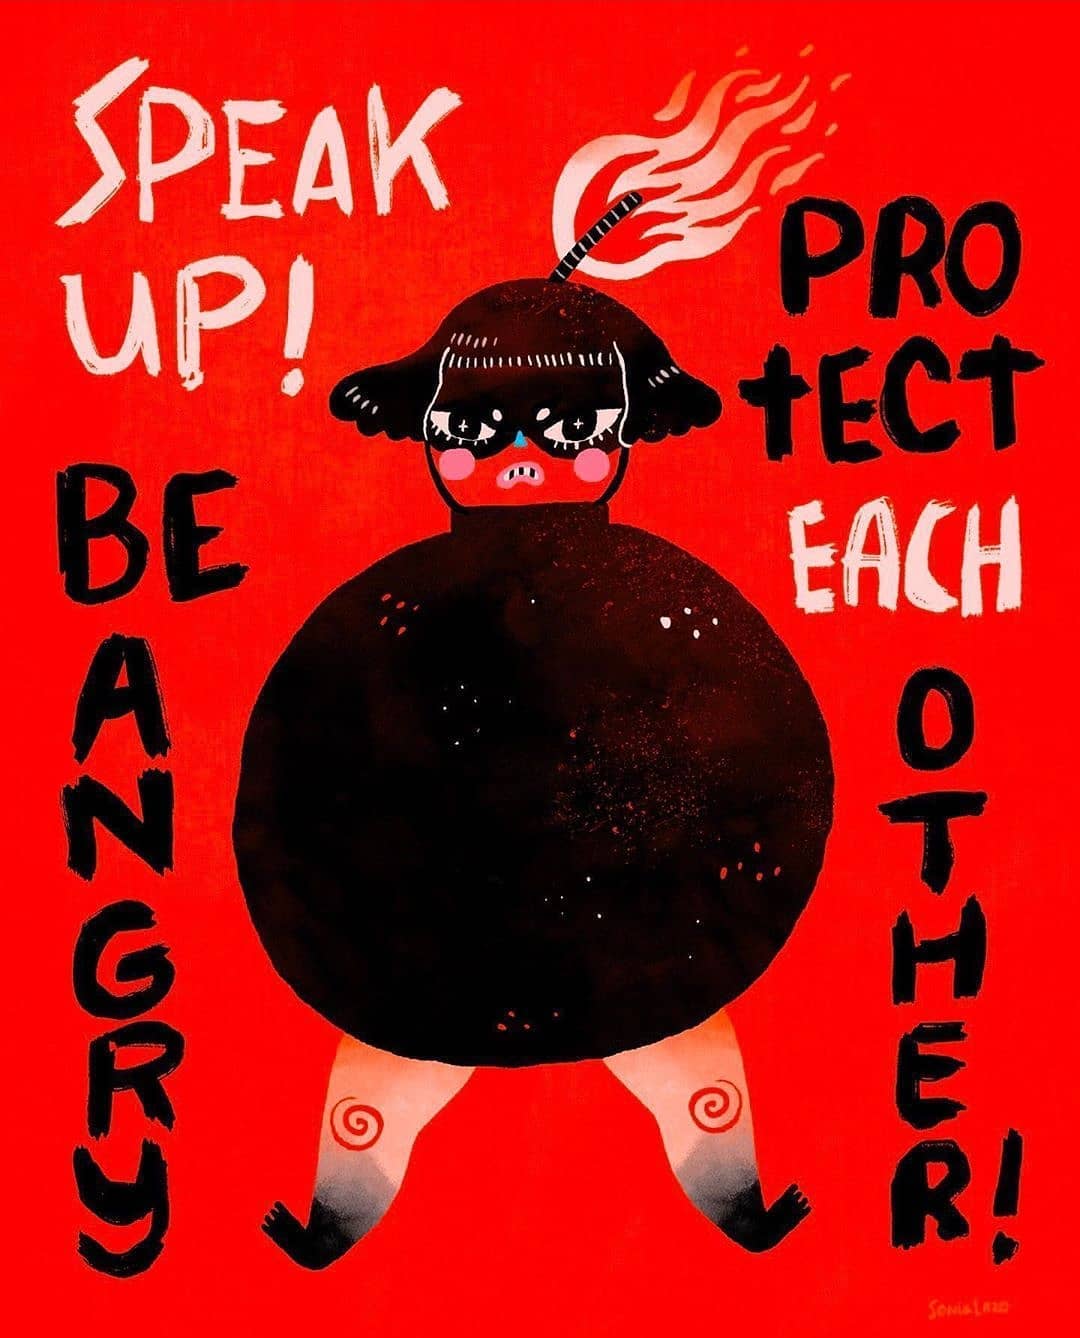 SPEAK
UP!
BE
A
N
G
R
Y
PRO
TECT
EACH
O
T
H
E
R!
SONIA LAZO